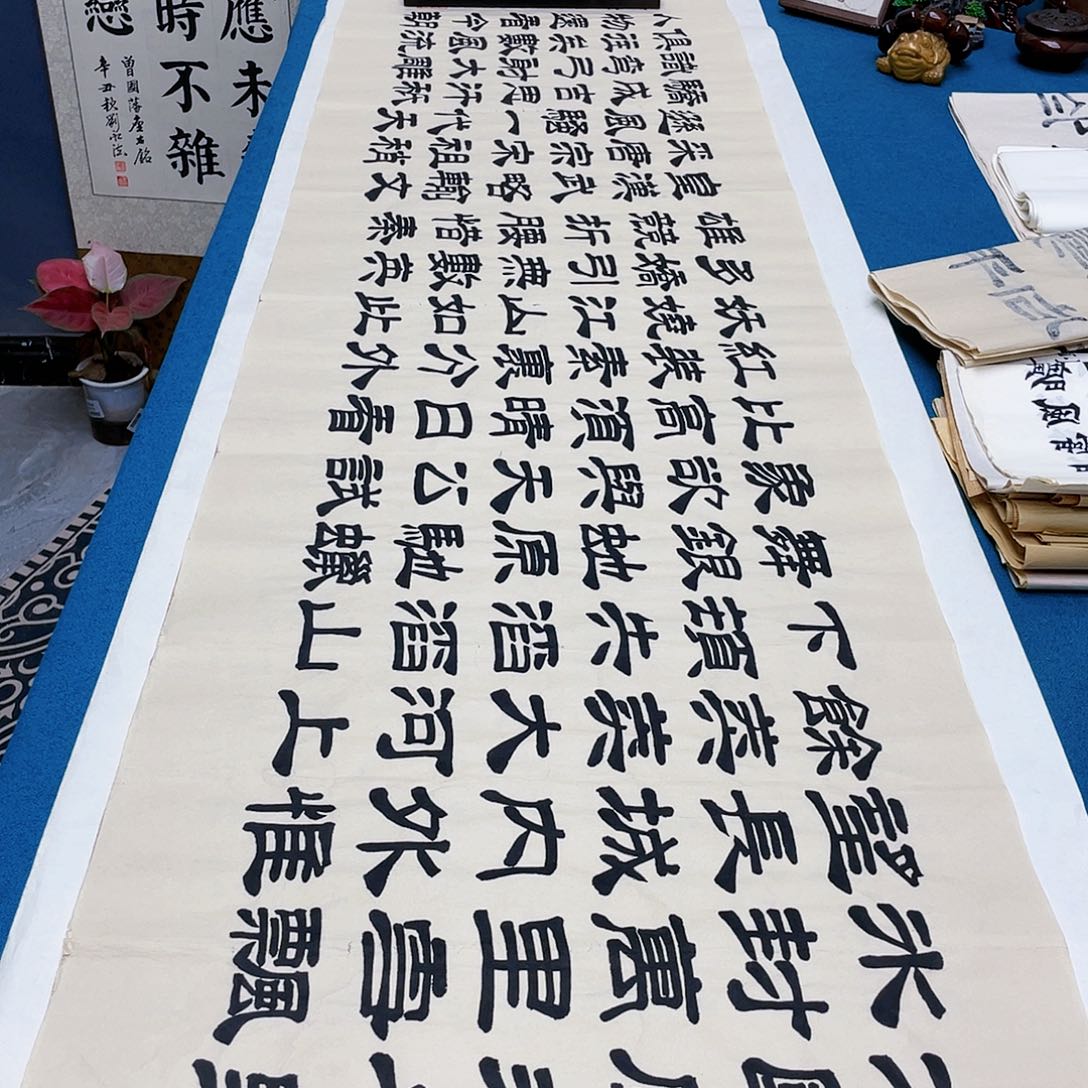 冰封萬里雪飄
望長城内外惟
餘莽莽大河上
下頓失滔滔山
舞銀蛇原馳蠟
象欲與天公試
比高須晴日看
紅裝素裹分外
妖嬈江山如此
多嬌引無數英
雄競折腰惜秦
皇漢武略輸文
采唐宗宋祖稍
遜風騷一代天
驕成吉思汗祇
識彎弓射大雕
俱往矣數風流
人物還看今朝
應未
時不雜
戀
曾國藩座右銘
辛丑秋劉